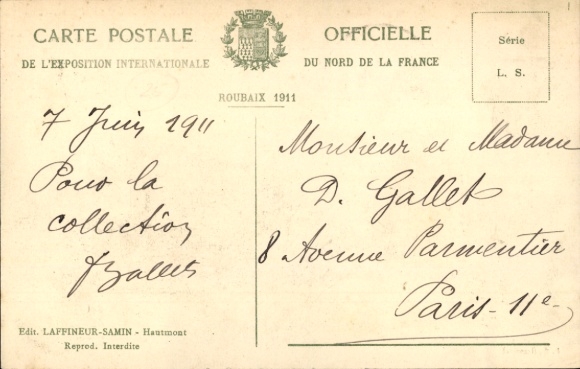 CARTE POSTALE OFFICIELLE
DE L'EXPOSITION INTERNATIONALE DU NORD DE LA FRANCE
ROUBAIX 1911
Série
L. S.
7 Juin 1911
Pour la
collection
Monsieur et Madame
D. Gallet
8 Avenue Parmentier
Paris - 11e
Edit. LAFFINEUR-SAMIN - Hautmont
Reprod. Interdite